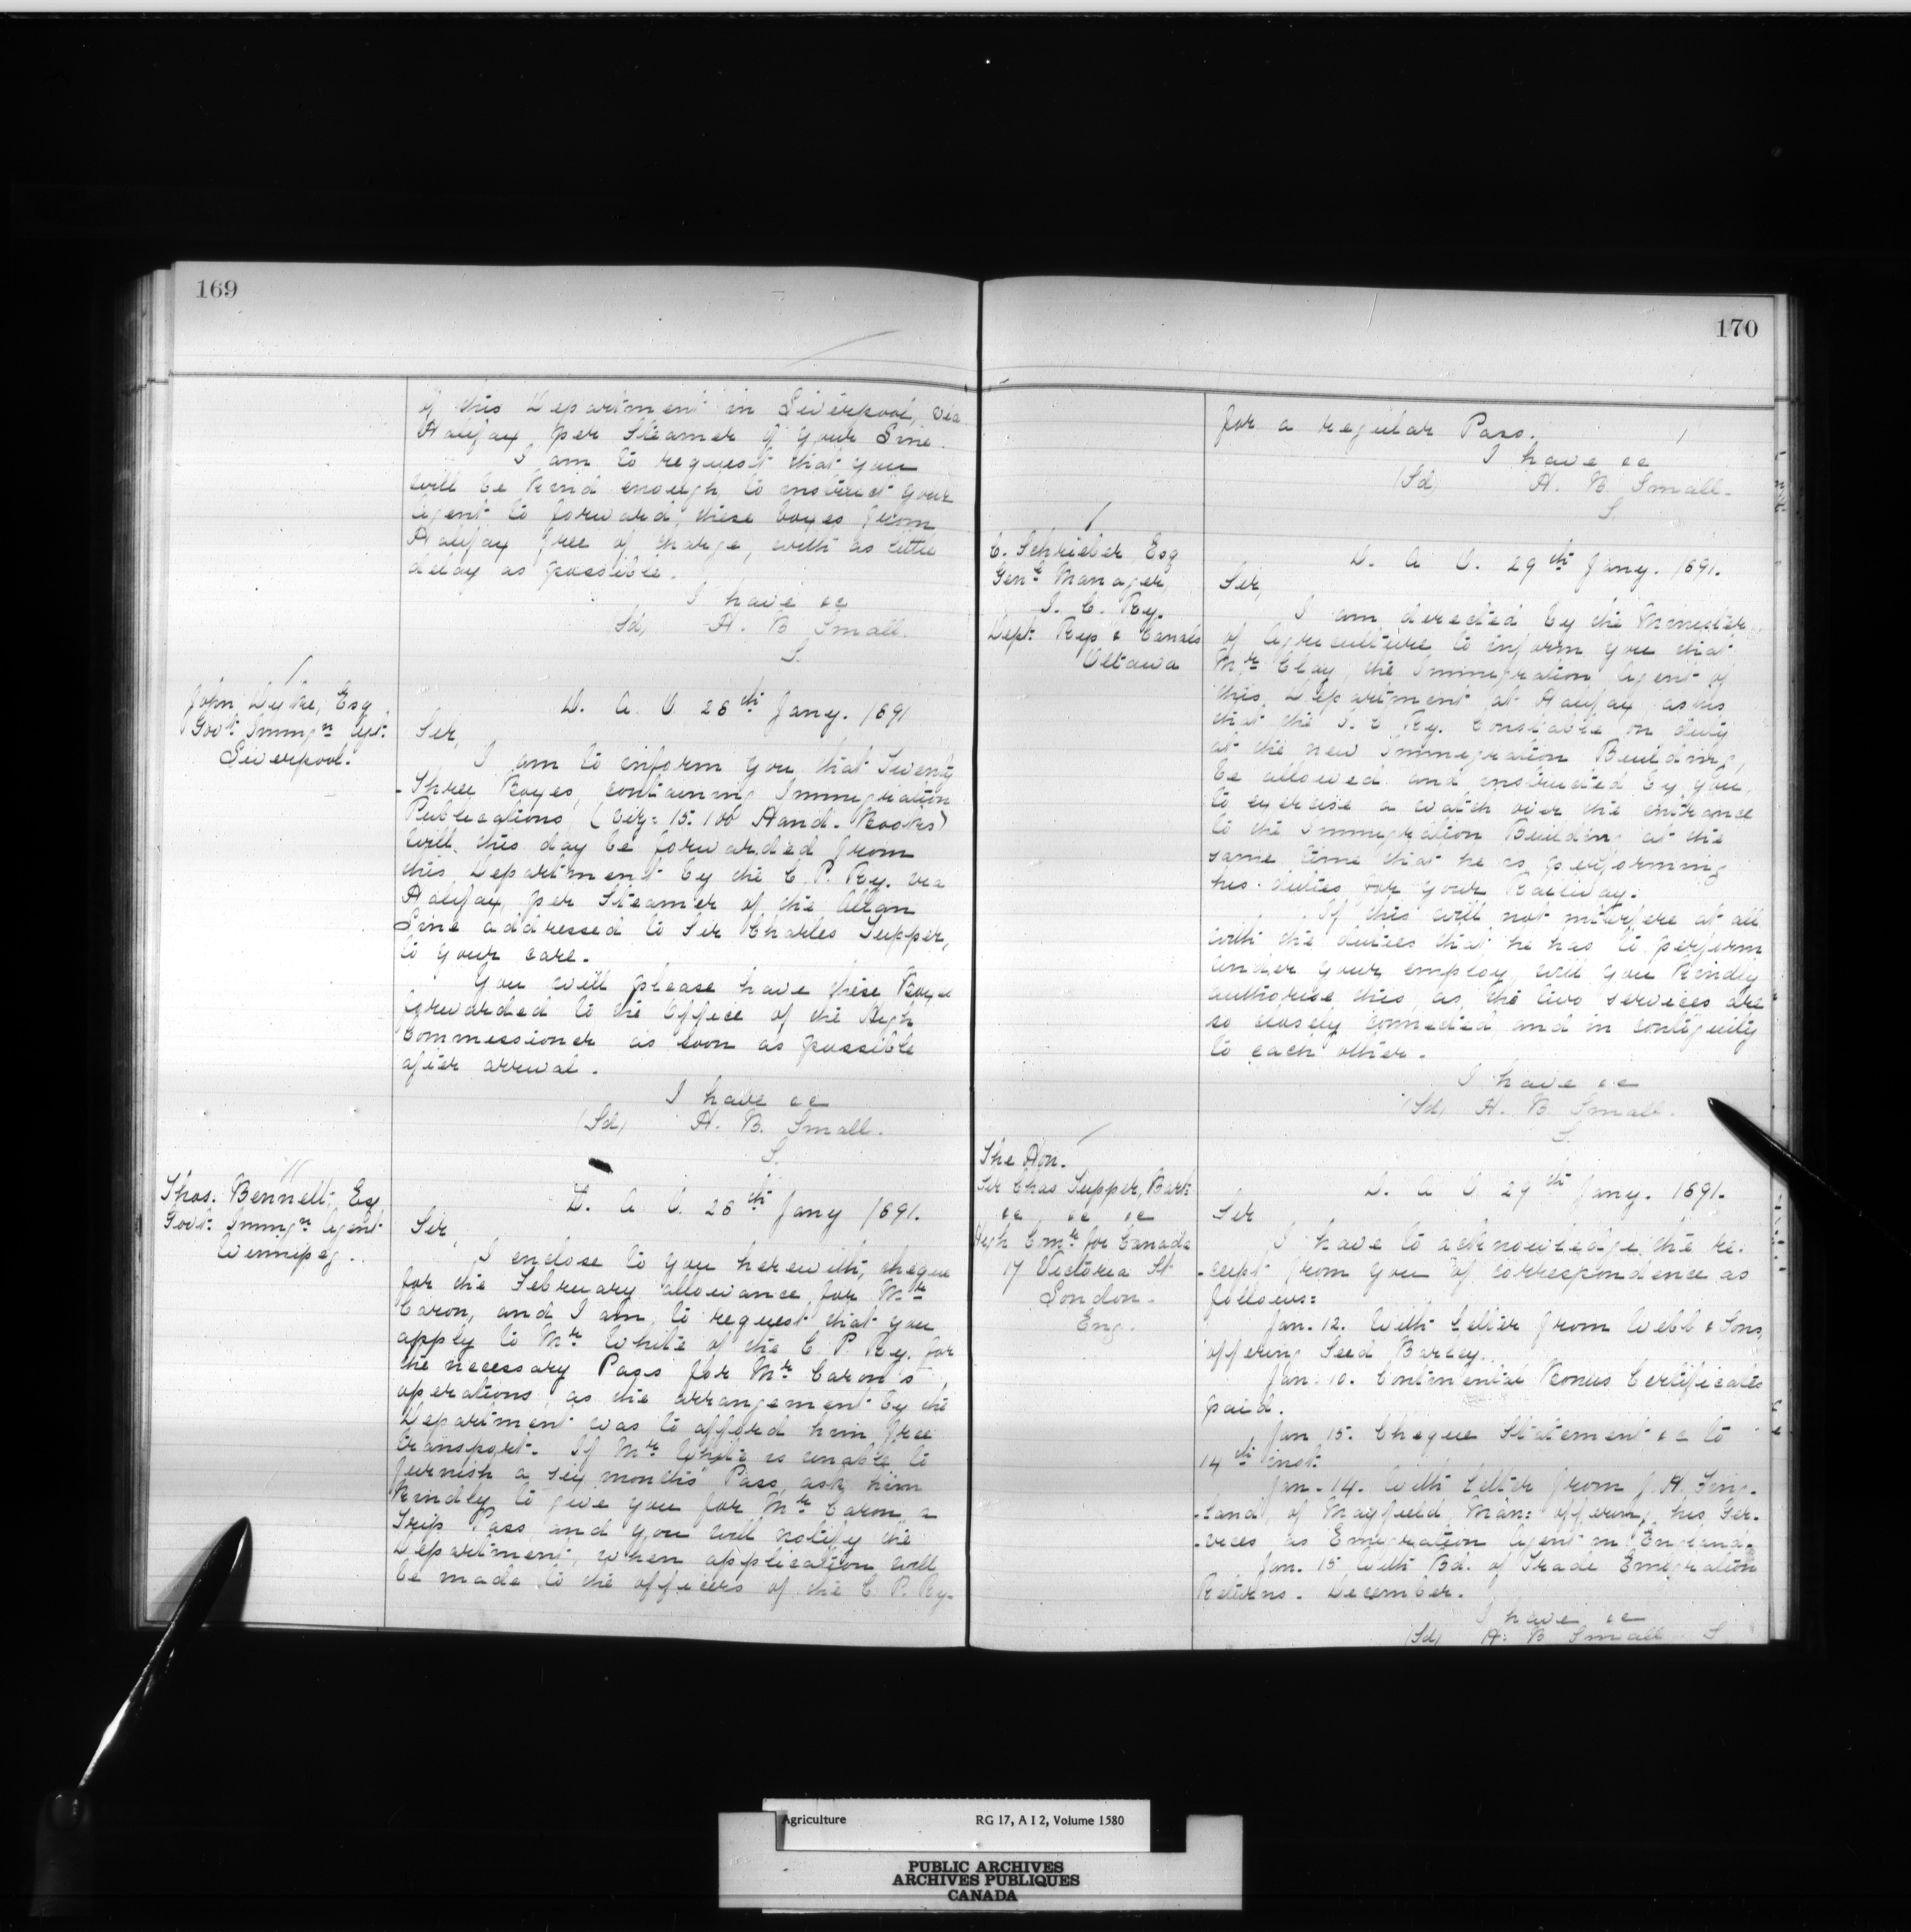 169
of this Department in Liverpool, via
Halifax per Steamer of your Line.
I am to request that you
will be kind enough to instruct your
Agent to forward these boxes from
Halifax free of charge, with as little
delay as possible.
I have &c
(Sd) H. B Small.
S.
John Dyke, Esq
Govt. Immgn Agt.
Liverpool.
D. A. O. 28th Jany. 1891
Sir,
I am to inform you that Twenty
-Three Boxes, containing Immigration
Publications (viz: 15.100 Hand-Books)
will this day be forwarded from
this Department by the C. P. Ry. via
Halifax, per Steamer of the Allan
Line addressed to Sir Charles Tupper,
to your care.
You will please have these Boxes
forwarded to the Office of the High
Commissioner as soon as possible
after arrival.
I have &c
(Sd) H. B. Small.
S.
Thos. Bennett, Esq
Govt. Immgn Agent
Winnipeg.
D. A. O. 28th Jany 1891.
Sir,
I enclose to you herewith, cheque
for the February allowance for Mr
Caron, and I am to request that you
apply to Mr White of the C. P. Ry. for
the necessary Pass for Mr Caron's
operations, as the arrangement by the
Department was to afford him free
transport. If Mr White is unable to
furnish a six months' Pass, ask him
kindly to give you for Mr Caron a
Trip Pass and you will notify the
Department, when application will
be made to the officers of the C. P. Ry.
170
for a regular Pass.
I have &c
(Sd) H. B. Small.
S.
C. Schrieber, Esq
Genl Manager,
I. C. Ry.
Dept. Rys & Canals
Ottawa
D. A. O. 29th Jany. 1891.
Sir,
I am directed by the Minister
of Agriculture to inform you that
Mr Clay, the Immigration Agent of
this Department at Halifax asks
that the I. C Ry. Constable on duty
at the new Immigration Building,
be allowed and instructed by you,
to exercise a watch over the entrance
to the Immigration Building at the
same time that he is performing
his duties for your Railway.
If this will not interfere at all
with the duties that he has to perform
under your employ, will you kindly
authorise this, as the two services are
so closely connected and in contiguity
to each other.
I have &c
(Sd) H. B. Small.
S.
The Hon.
Sir Chas Tupper, Bart.
&c &c &c
High Comr for Canada
17 Victoria St
London.
Eng.
D. A. O. 29th Jany. 1891.
Sir
I have to acknowledge the re-
-ceipt from you of correspondence as
follows:
Jan. 12. With Letter from Webb & Sons,
offering Seed Barley.
Jan. 10. Continental Bonus Certificates
paid.
Jan 15. Cheque Statement &c to
14th inst.
Jan. 14. With Letter from J. H.
-land, of Mayfield, Man: offering his Ser-
-vices as Emigration Agent in England.
Jan. 15 With Bd. of Trade Emigration
Returns. December.
I have &c
(Sd) H. B Small S
Agriculture RG 17, A I 2, Volume 1580
PUBLIC ARCHIVES
ARCHIVES PUBLIQUES
CANADA